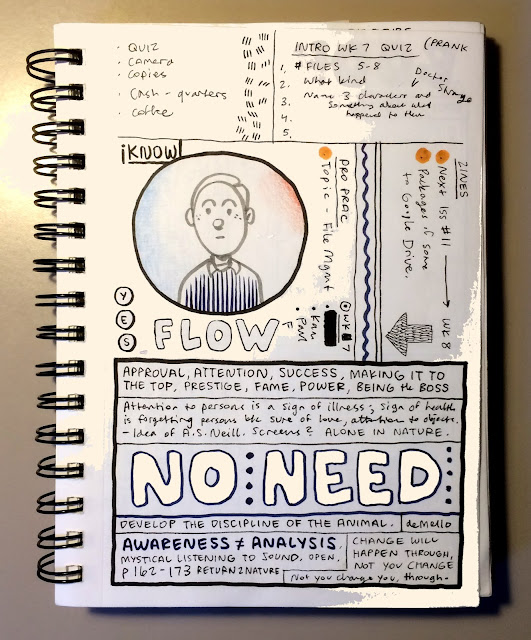 • QUIZ
• camera
• copies
• cash - quarters
• coffee
INTRO WK 7 QUIZ (PRANK
1. # FILES 5-8
2. What kind
Doctor Strange
3. Name 3 characters and
Something about what
4. happened to them
5.
iKNOW!
YES
FLOW
PRO PRAC
• Topic - File Mgmt
WK 7
• Kau
• Paul
F
ZINES
• Next Iss #11 → WK 8
• Packages, if some
to Google Drive.
APPROVAL, ATTENTION, SUCCESS, MAKING IT TO
THE TOP, PRESTIGE, FAME, POWER, BEING the BOSS
Attention to persons is a sign of illness; sign of health
is forgetting persons b/c sure of love, attention to objects.
- Idea of A.S. Neill. Screens & ALONE IN NATURE.
NO : NEED :
DEVELOP THE DISCIPLINE OF THE ANIMAL. deMello
AWARENESS ≠ ANALYSIS.
MYSTICAL LISTENING TO SOUND. OPEN.
P 162-173 RETURN 2 NATURE
CHANGE WILL
HAPPEN THROUGH,
NOT YOU CHANGE
Not you change you, through.